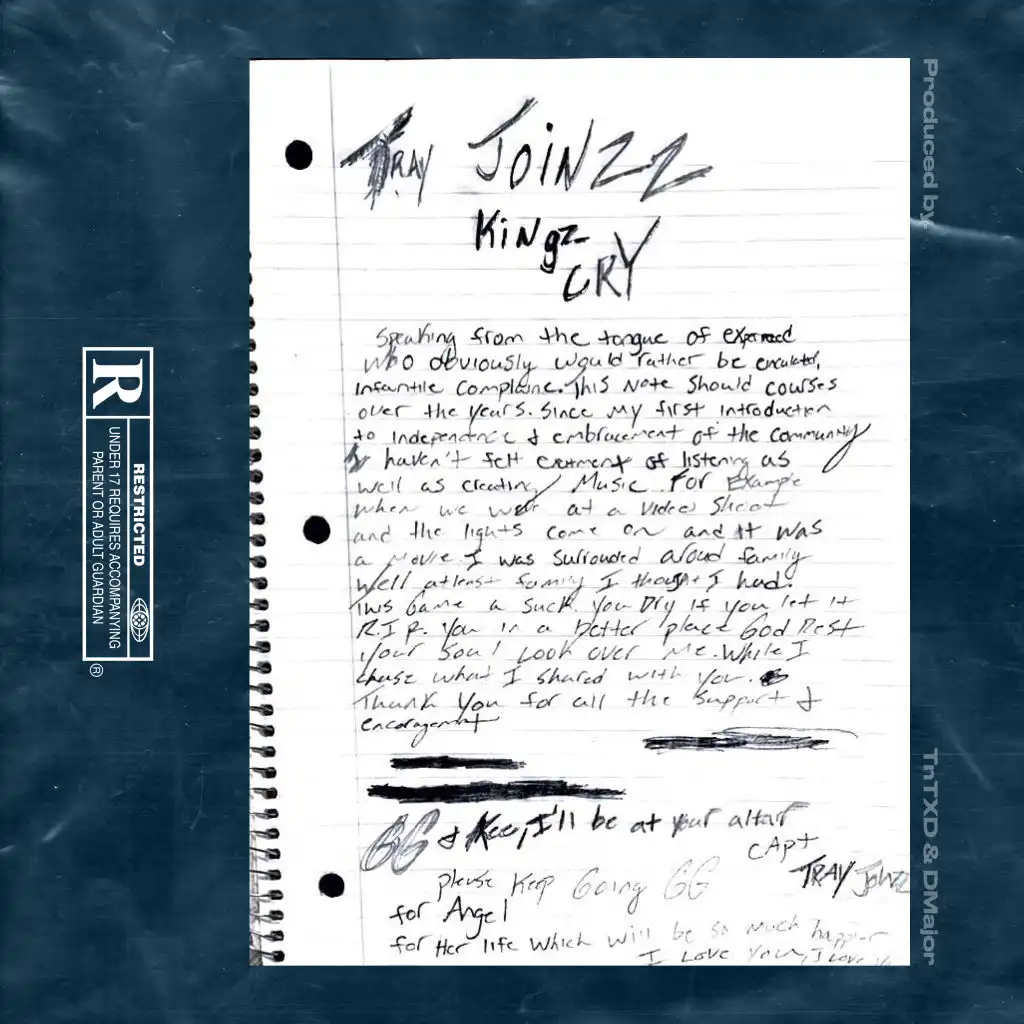 TRAY JOINZZ
Kingz
CRY
Speaking from the tongue of
who obviously would rather be
Infantile This Note Should courses
over the years. Since My first introduction
to Independence & embracement of the Community
I haven't felt of listening as
well as creating Music. For Example
when we were at a Video Shoot
and the lights come on and It was
a Movie. I was surrounded aroud family
well atleast family I thought I had.
This Game a Suck You Dry if you let it
R.I.P. You in a better place God Rest
Your Soul Look over Me. While I
chase what I shared with You.
Thank You for all the Support &
encoragement
GG & Keo, I'll be at your altar
CApt
TRAY JOINZZ
please Keep Going GG
for Angel
for Her life which will be so much happier
I Love You, I Love
R
RESTRICTED
UNDER 17 REQUIRES ACCOMPANYING
PARENT OR ADULT GUARDIAN
®
Produced by
TnTXD & DMajor